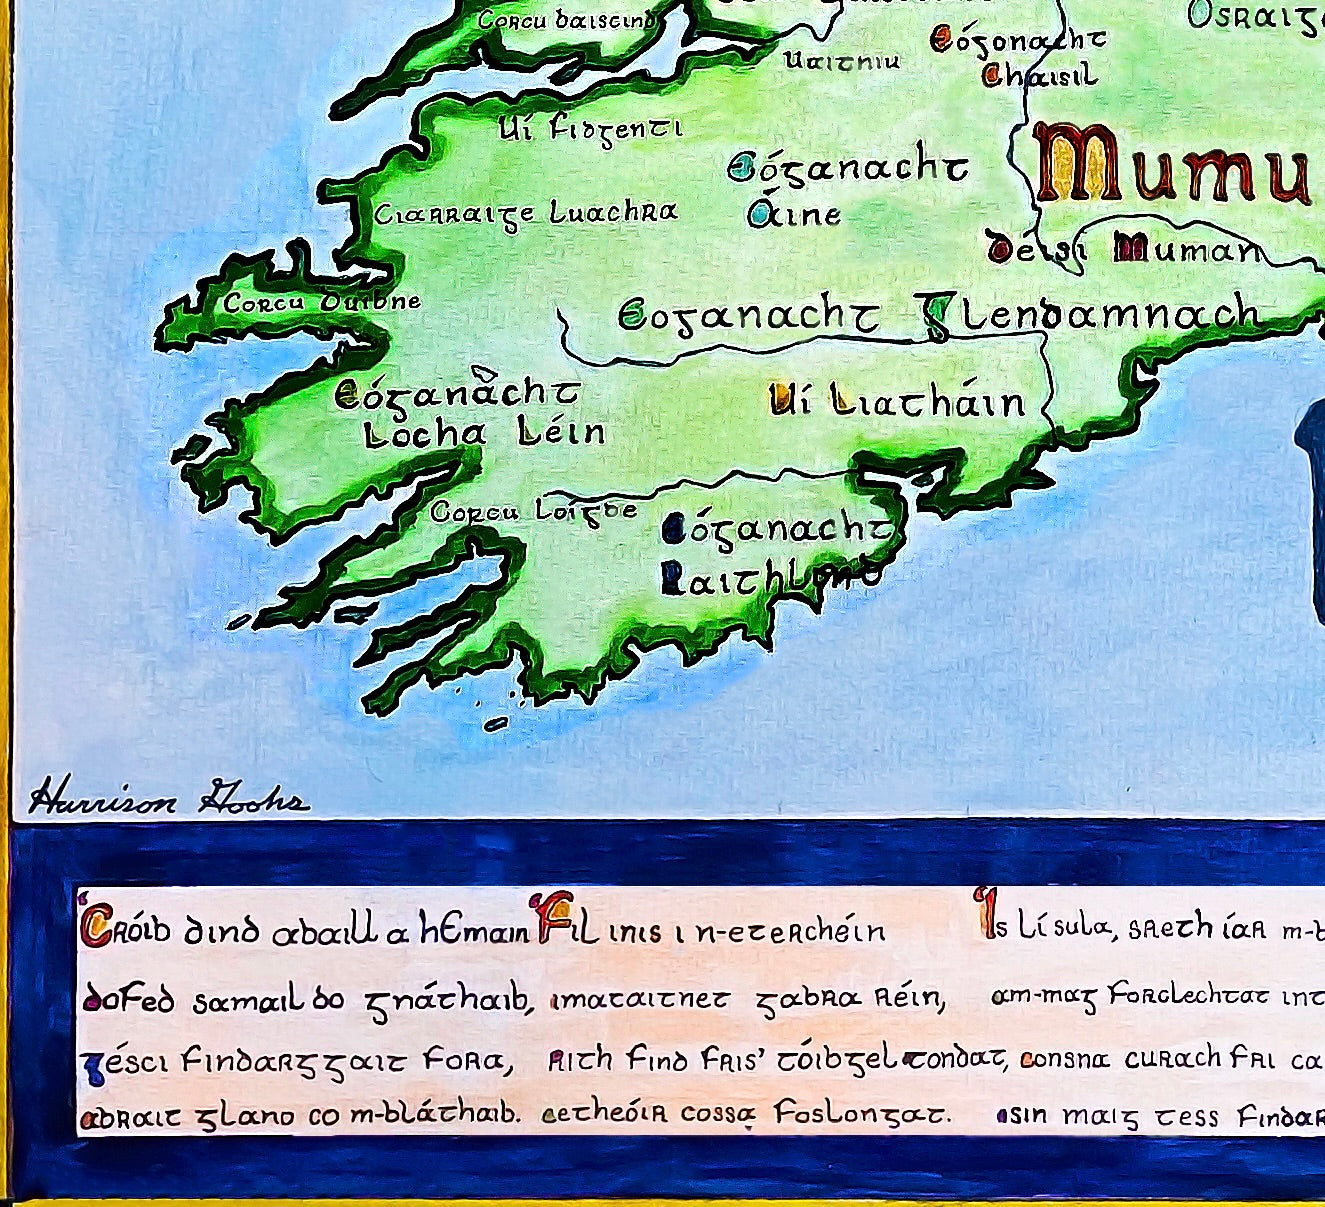 Corcu baiscind
Uaitniu
Eógonacht
Chaisil
Osraig
Uí Fidgenti
Eóganacht
Áine
Mumu
Ciarraige Luachra
Déisi Muman
Corcu Duibne
Eoganacht Glendamnach
Eóganacht
Locha Léin
Uí Liatháin
Corcu Loígde
Eóganacht
Raithlind
Harrison
Cróib dind abaill a hEmain
dofed samail do gnáthaib,
gésci findarggait fora,
abrait glano co m-bláthaib.
Fil inis i n-eterchéin
imataitnet gabra réin,
rith find fris' tóibgel tondat,
cetheóir cossa foslongat.
Is Lí sula, sreth íar m-b
am-mag forclechtat int
consna curach fri ca
isin maig tess findar